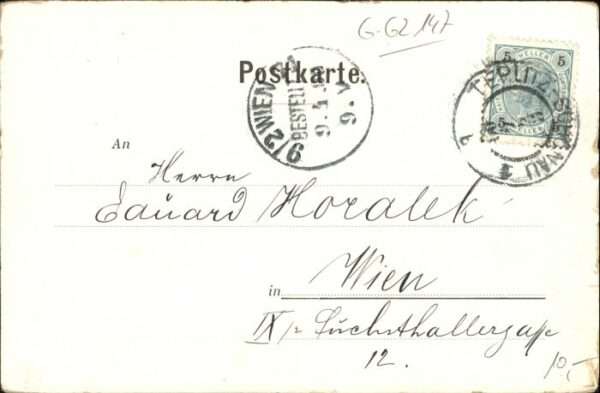 G-G2 147
5 HELLER 5
Postkarte.
TEPLITZ-SCHÖNAU 1
b
9/2 WIEN
BESTELLT
9. 1
An
Herrn
Eduard Horalek
in Wien
IX/2 Fuchsthallergasse
12.
10,-